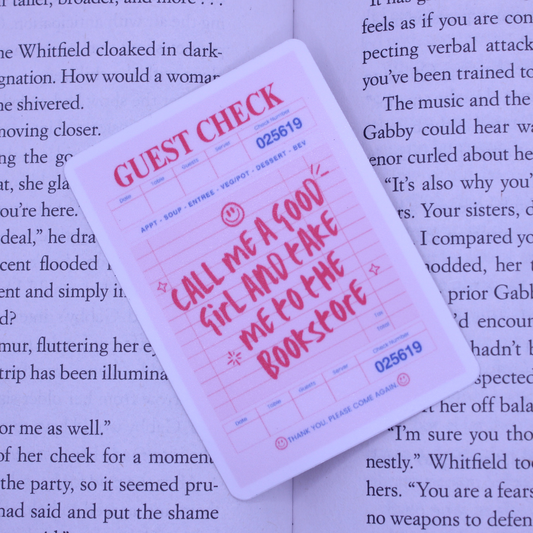 taller, broader, and more . . .
he Whitfield cloaked in dark-
gnation. How would a woman
he shivered.
moving closer.
ng the go
at, she gla
ou're here.
deal," he dra
cent flooded
ent and simply
d?
mur, fluttering her
trip has been illumina
or me as well."
of her cheek for a moment
the party, so it seemed pru-
had said and put the shame
GUEST CHECK
Date Table Guests Server Check Number
025619
APPT - SOUP - ENTREE - VEG/POT - DESSERT - BEV
CALL ME A GOOD
GIRL AND TAKE
ME TO THE
BOOKSTORE
Tax
Total
Date Table Guests Server Check Number
025619
THANK YOU, PLEASE COME AGAIN
feels as if you are con
pecting verbal attack
you've been trained to
The music and the
Gabby could hear wa
enor curled about he
"It's also why you'
rs. Your sisters, d
I compared yo
nodded, her t
prior Gabb
'd encoun
hadn't b
spected
it her off bala
"I'm sure you tho
nestly." Whitfield too
hers. "You are a fears
no weapons to defen